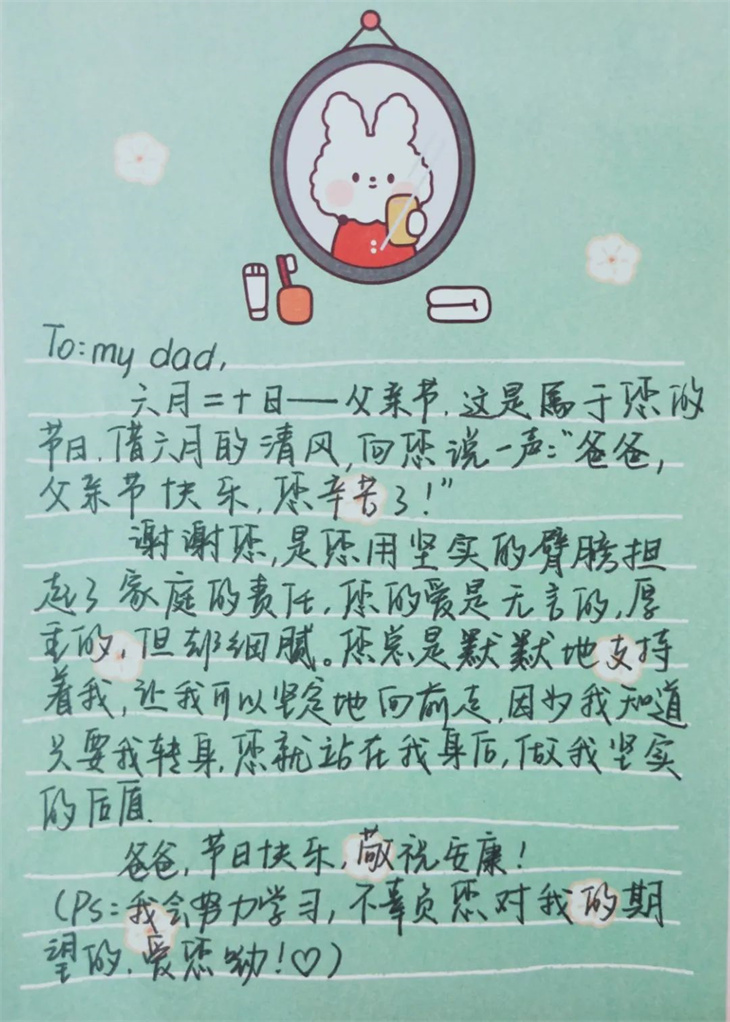 To: my dad,
六月二十日——父亲节,这是属于您的
节日.借六月的清风,向您说一声:“爸爸,
父亲节快乐,您辛苦了!”
谢谢您,是您用坚实的臂膀担
起了家庭的责任,您的爱是无言的,厚
重的,但却细腻。您总是默默地支持
着我,让我可以坚定地向前走,因为我知道
只要我转身,您就站在我身后,做我坚实
的后盾.
爸爸,节日快乐,敬祝安康!
(Ps:我会努力学习,不辜负您对我的期
望的.爱您呦!♡)